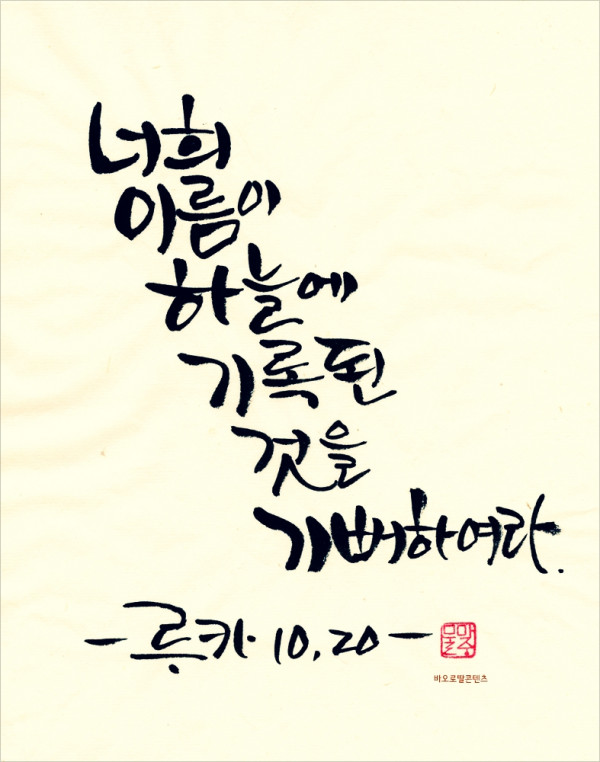 너희
이름이
하늘에
기록된
것을
기뻐하여라.
- 루카 10,20 -
바오로딸콘텐츠